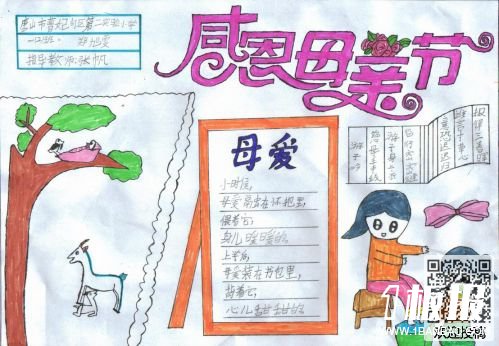 唐山市曹妃甸区第二实验小学
一(2)班 郑旭雯
指导教师:张帆
感恩母亲节
游子吟
慈母手中线
游子身上衣
临行密密缝
意恐迟迟归
谁言寸草心
报得三春晖
母爱
小时候,
母爱帚在怀抱里,
偎着它,
身儿暖暖的
上学后,
母爱装在书包里,
背着它,
心儿甜甜的